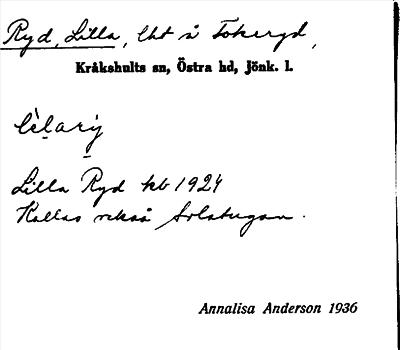 Ryd, Lilla, lht å Tokaryd,
Kråkshults sn, Östra hd, Jönk. l.
Lilla Ryd kb 1924
Kallas också Solstugan.
Annalisa Anderson 1936